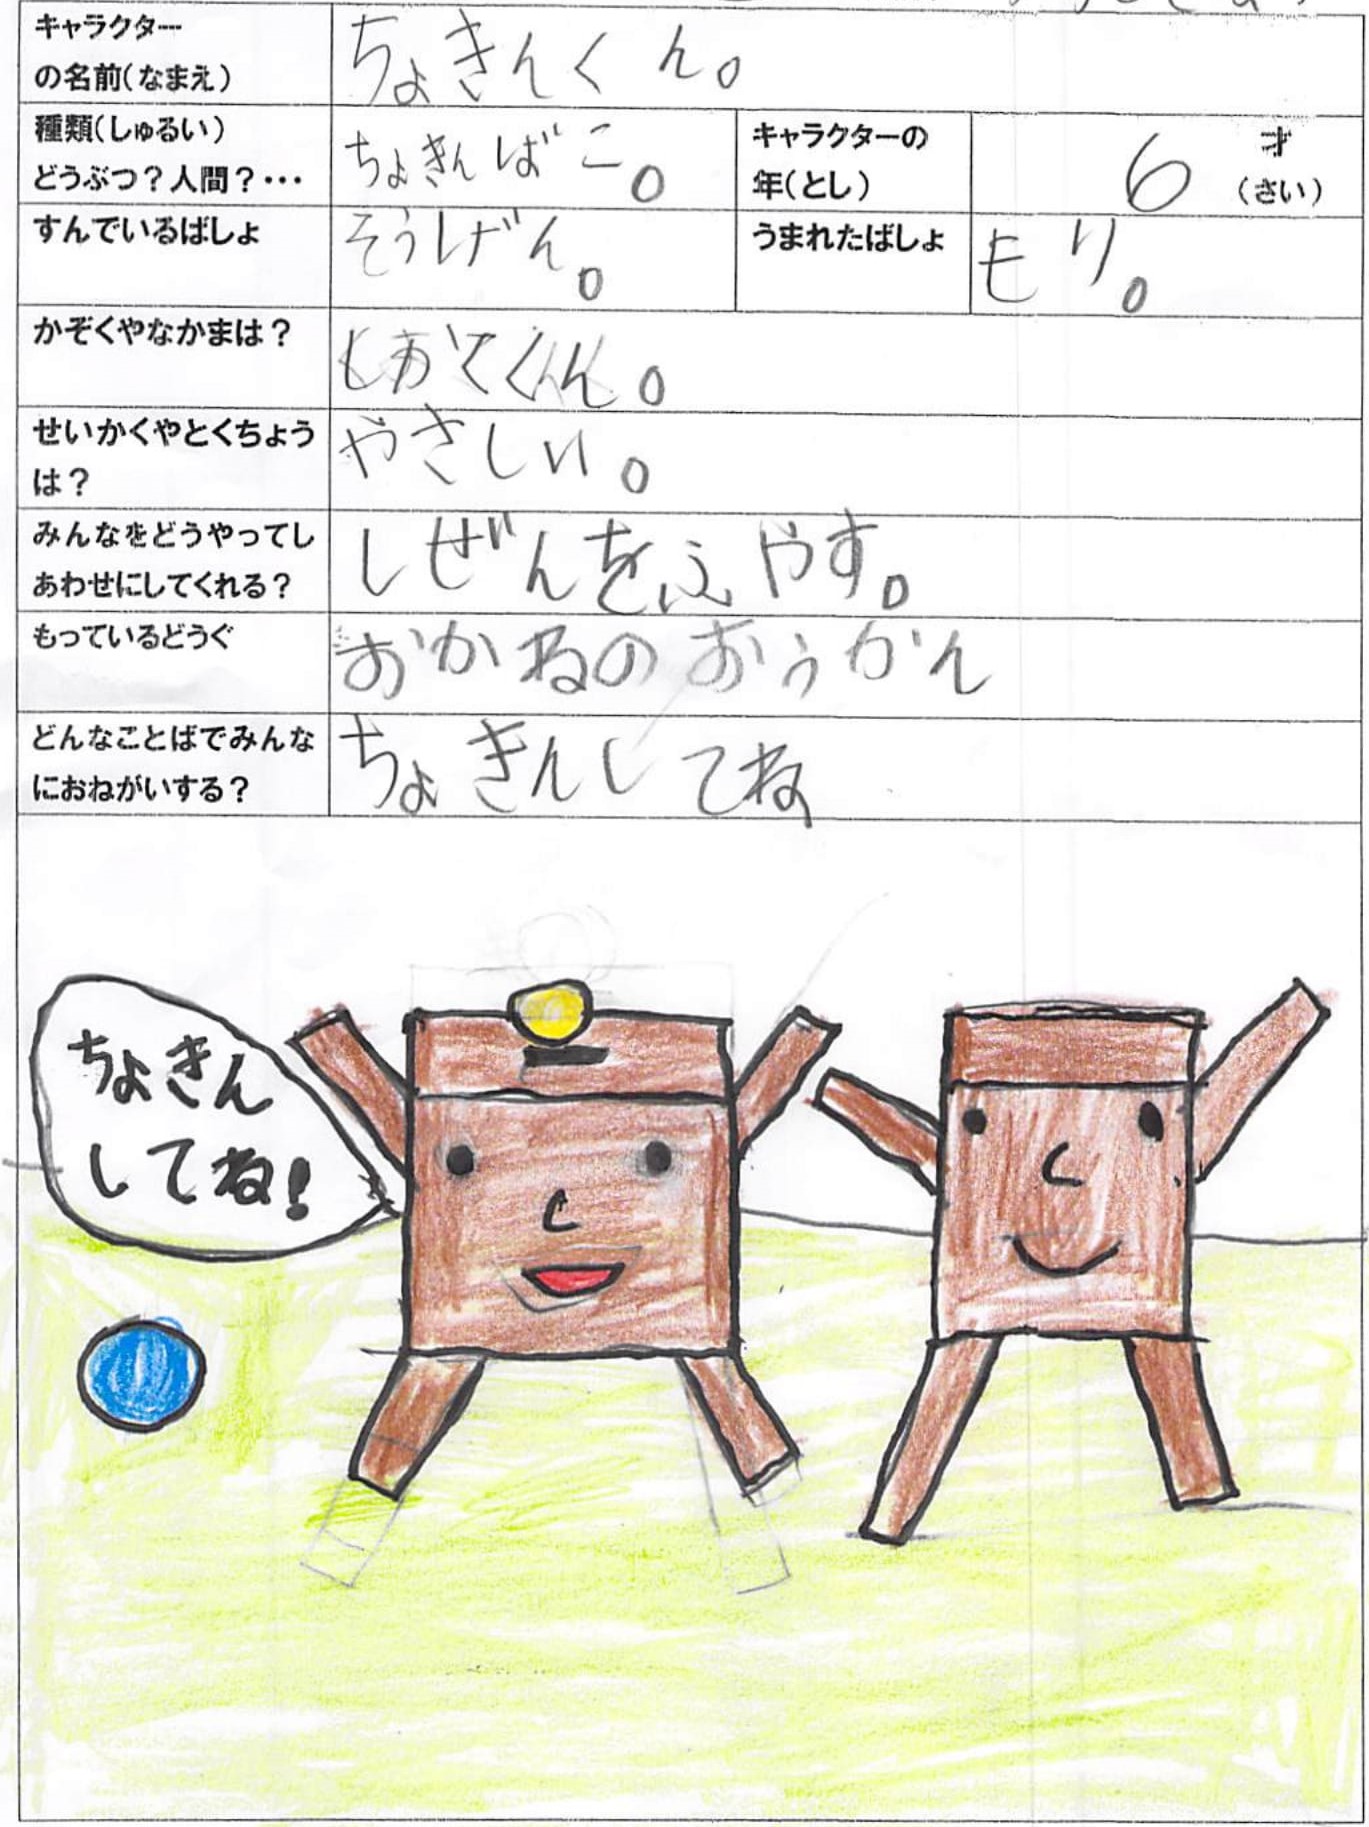 キャラクター
の名前(なまえ)
ちょきんくん。
種類(しゅるい)
どうぶつ?人間?・・・
ちょきんばこ。
キャラクターの
年(とし)
6
才
(さい)
すんでいるばしょ
そうげん。
うまれたばしょ
もり。
かぞくやなかまは?
くん。
せいかくやとくちょう
は?
やさしい。
みんなをどうやってし
あわせにしてくれる?
しぜんをふやす。
もっているどうぐ
おかねのおうかん
どんなことばでみんな
におねがいする?
ちょきんしてね
ちょきん
してね!